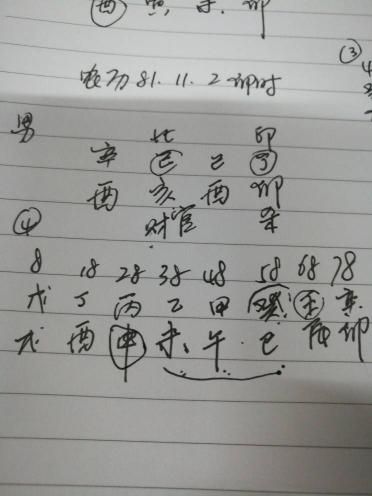 酉 寅 卯
③
4
农历 81.11.2 卯时
男 比 印
辛 己 己 丁
酉 亥 酉 卯
④ 财官 杀
8 18 28 38 48 58 68 78
戊 丁 丙 乙 甲 癸 壬 辛
戌 酉 申 未、午.巳 辰 卯